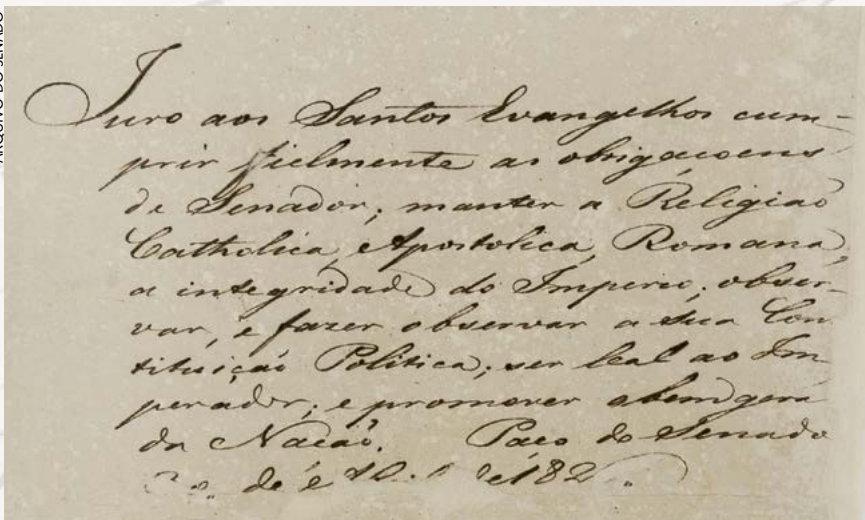 ARQUIVO DO SENADO
Juro aos Santos Evangelhos cum-
prir fielmente as obrigaçoens
de Senador; manter a Religiaõ
Catholica, Apostolica, Romana,
a integridade do Imperio; obser-
var, e fazer observar a sua Con
stituiçaõ Politica; ser leal ao Im
perador; e promover o bem geral
da Naçaõ. Paço do Senado
de de 182